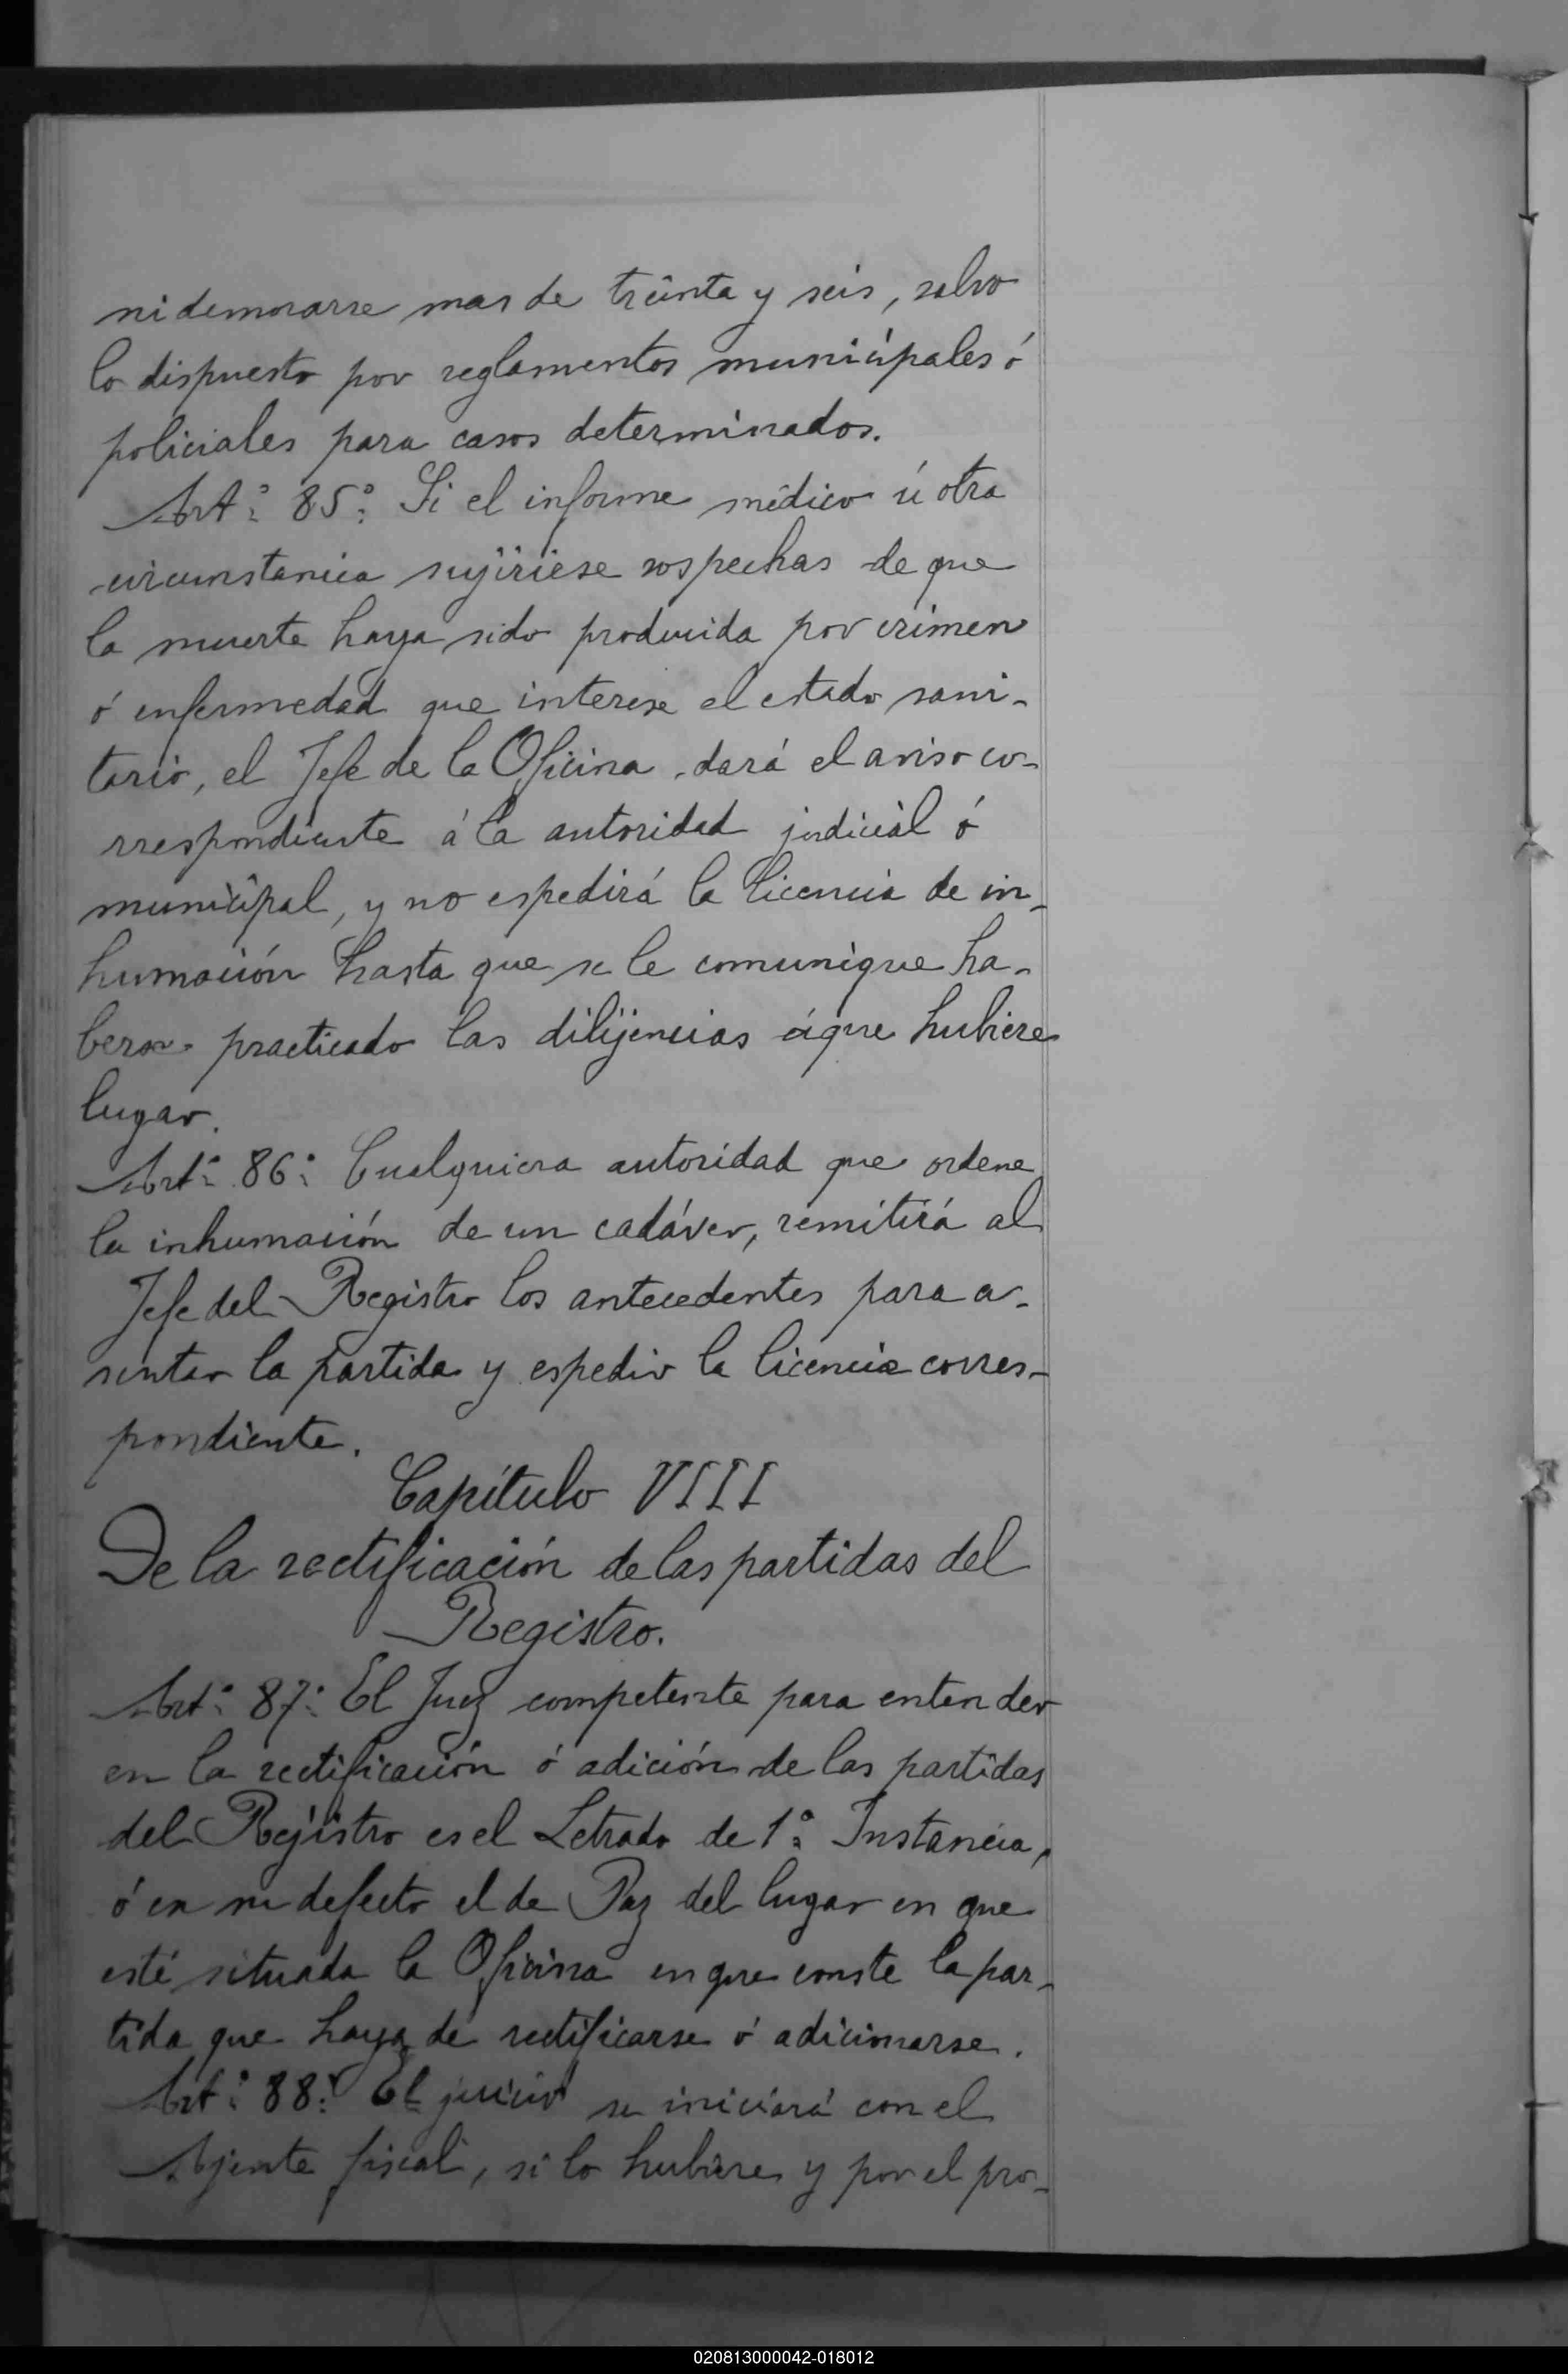 ni demorarse mas de treinta y seis, salvo
lo dispuesto por reglamentos municipales ó
policiales para casos determinados.
Artº 85º Si el informe médico ú otra
circunstancia sujiriese sospechas de que
la muerte haya sido producida por crimen
ó enfermedad que interese el estado sani-
tario, el Jefe de la Oficina dará el aviso co-
rrespondiente á la autoridad judicial ó
municipal, y no espedirá la licencia de in-
humación hasta que se le comunique ha-
berse practicado las dilijencias á que hubiere
lugar.
Artº 86º Cualquiera autoridad que ordene
la inhumación de un cadáver, remitirá al
Jefe del Registro los antecedentes para a-
sentar la partida y espedir la licencia corres-
pondiente.
Capítulo VIII
De la rectificación de las partidas del
Registro.
Artº 87º El Juez competente para entender
en la rectificación ó adición de las partidas
del Rejistro es el Letrado de 1ª Instancia,
ó en su defecto el de Paz del lugar en que
esté situada la Oficina en que conste la par-
tida que haya de rectificarse ó adicionarse.
Artº 88º El juicio se iniciará con el
Ajente fiscal, si lo hubiere y por el pro-
020813000042-018012